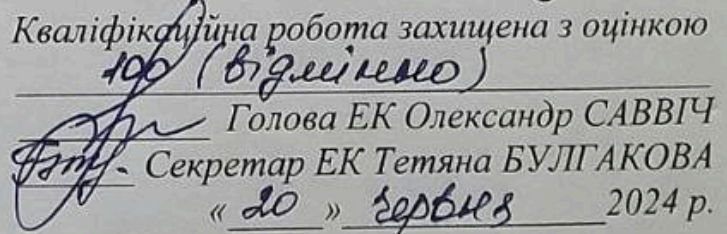 Кваліфікаційна робота захищена з оцінкою
100 (відмінно)
Голова ЕК Олександр САВВІЧ
Секретар ЕК Тетяна БУЛГАКОВА
« 20 » червня 2024 р.